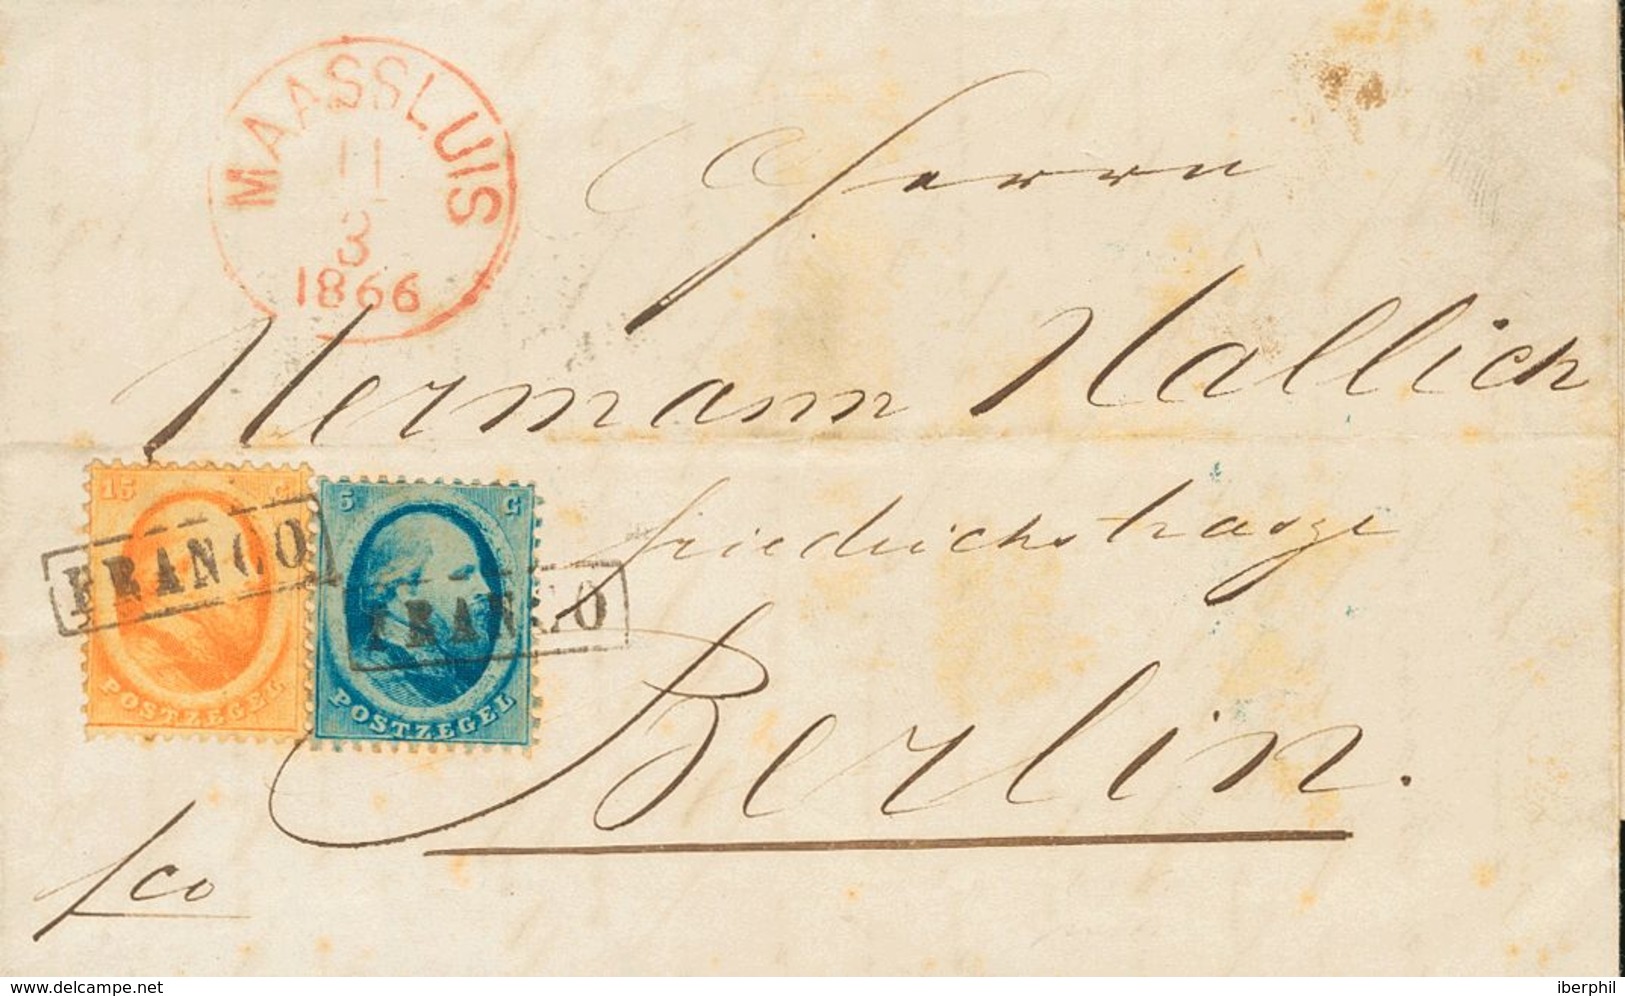 MAASSLUIS
11
3
1866
Herrn
Hermann Hallich
15 C
5 C
FRANCO
FRANCO
POSTZEGEL
POSTZEGEL
Friedrichstrasze
Berlin.
fco
www.delcampe.net
iberphil